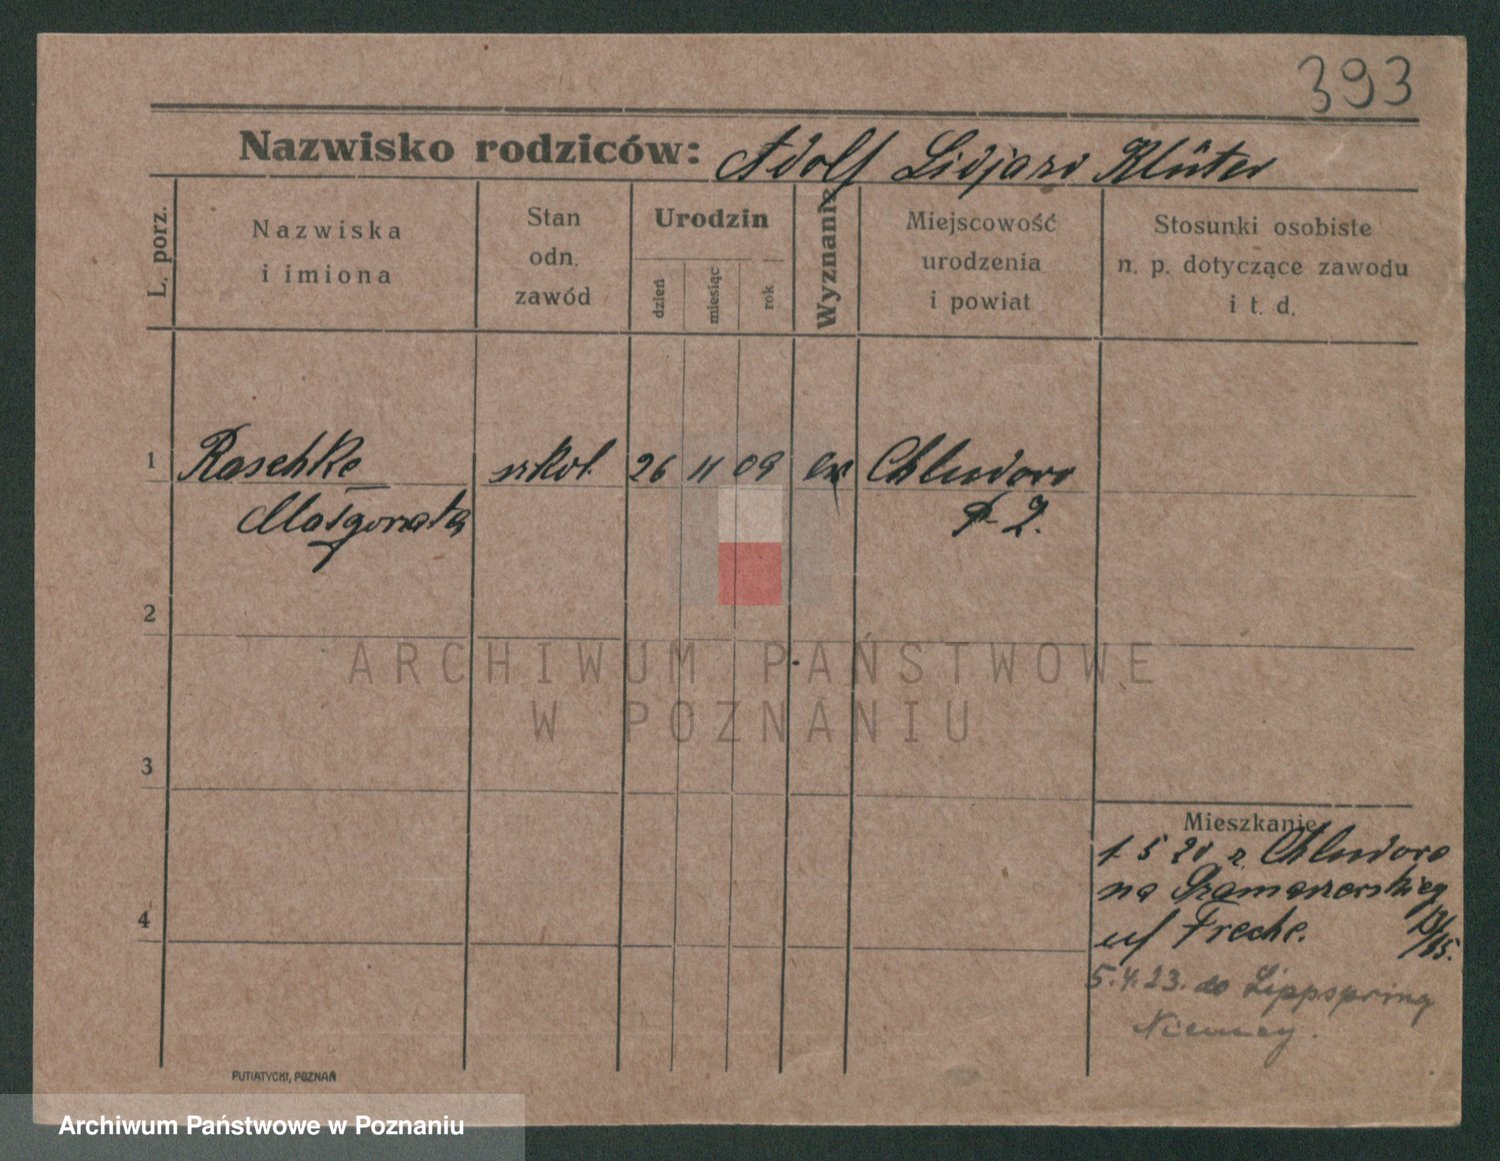 393
Nazwisko rodziców: Adolf Lidjard Klüter
L. porz.
Nazwiska
i imiona
Stan
odn.
zawód
Urodzin
dzień
miesiąc
rok
Wyznanie
Miejscowość
urodzenia
i powiat
Stosunki osobiste
n. p. dotyczące zawodu
i t. d.
1 Raschke szkol. 26 11 09 ew Chludowo
Małgorzata P. Z.
2
ARCHIWUM PAŃSTWOWE
W POZNANIU
3
Mieszkanie
1 5 20 z Chludowo
na Szamarzewskieg
u/ Freche. 13/15.
4
5.4.23. do Lippspring
Niemcy.
PUTIATYCKI, POZNAŃ
Archiwum Państwowe w Poznaniu